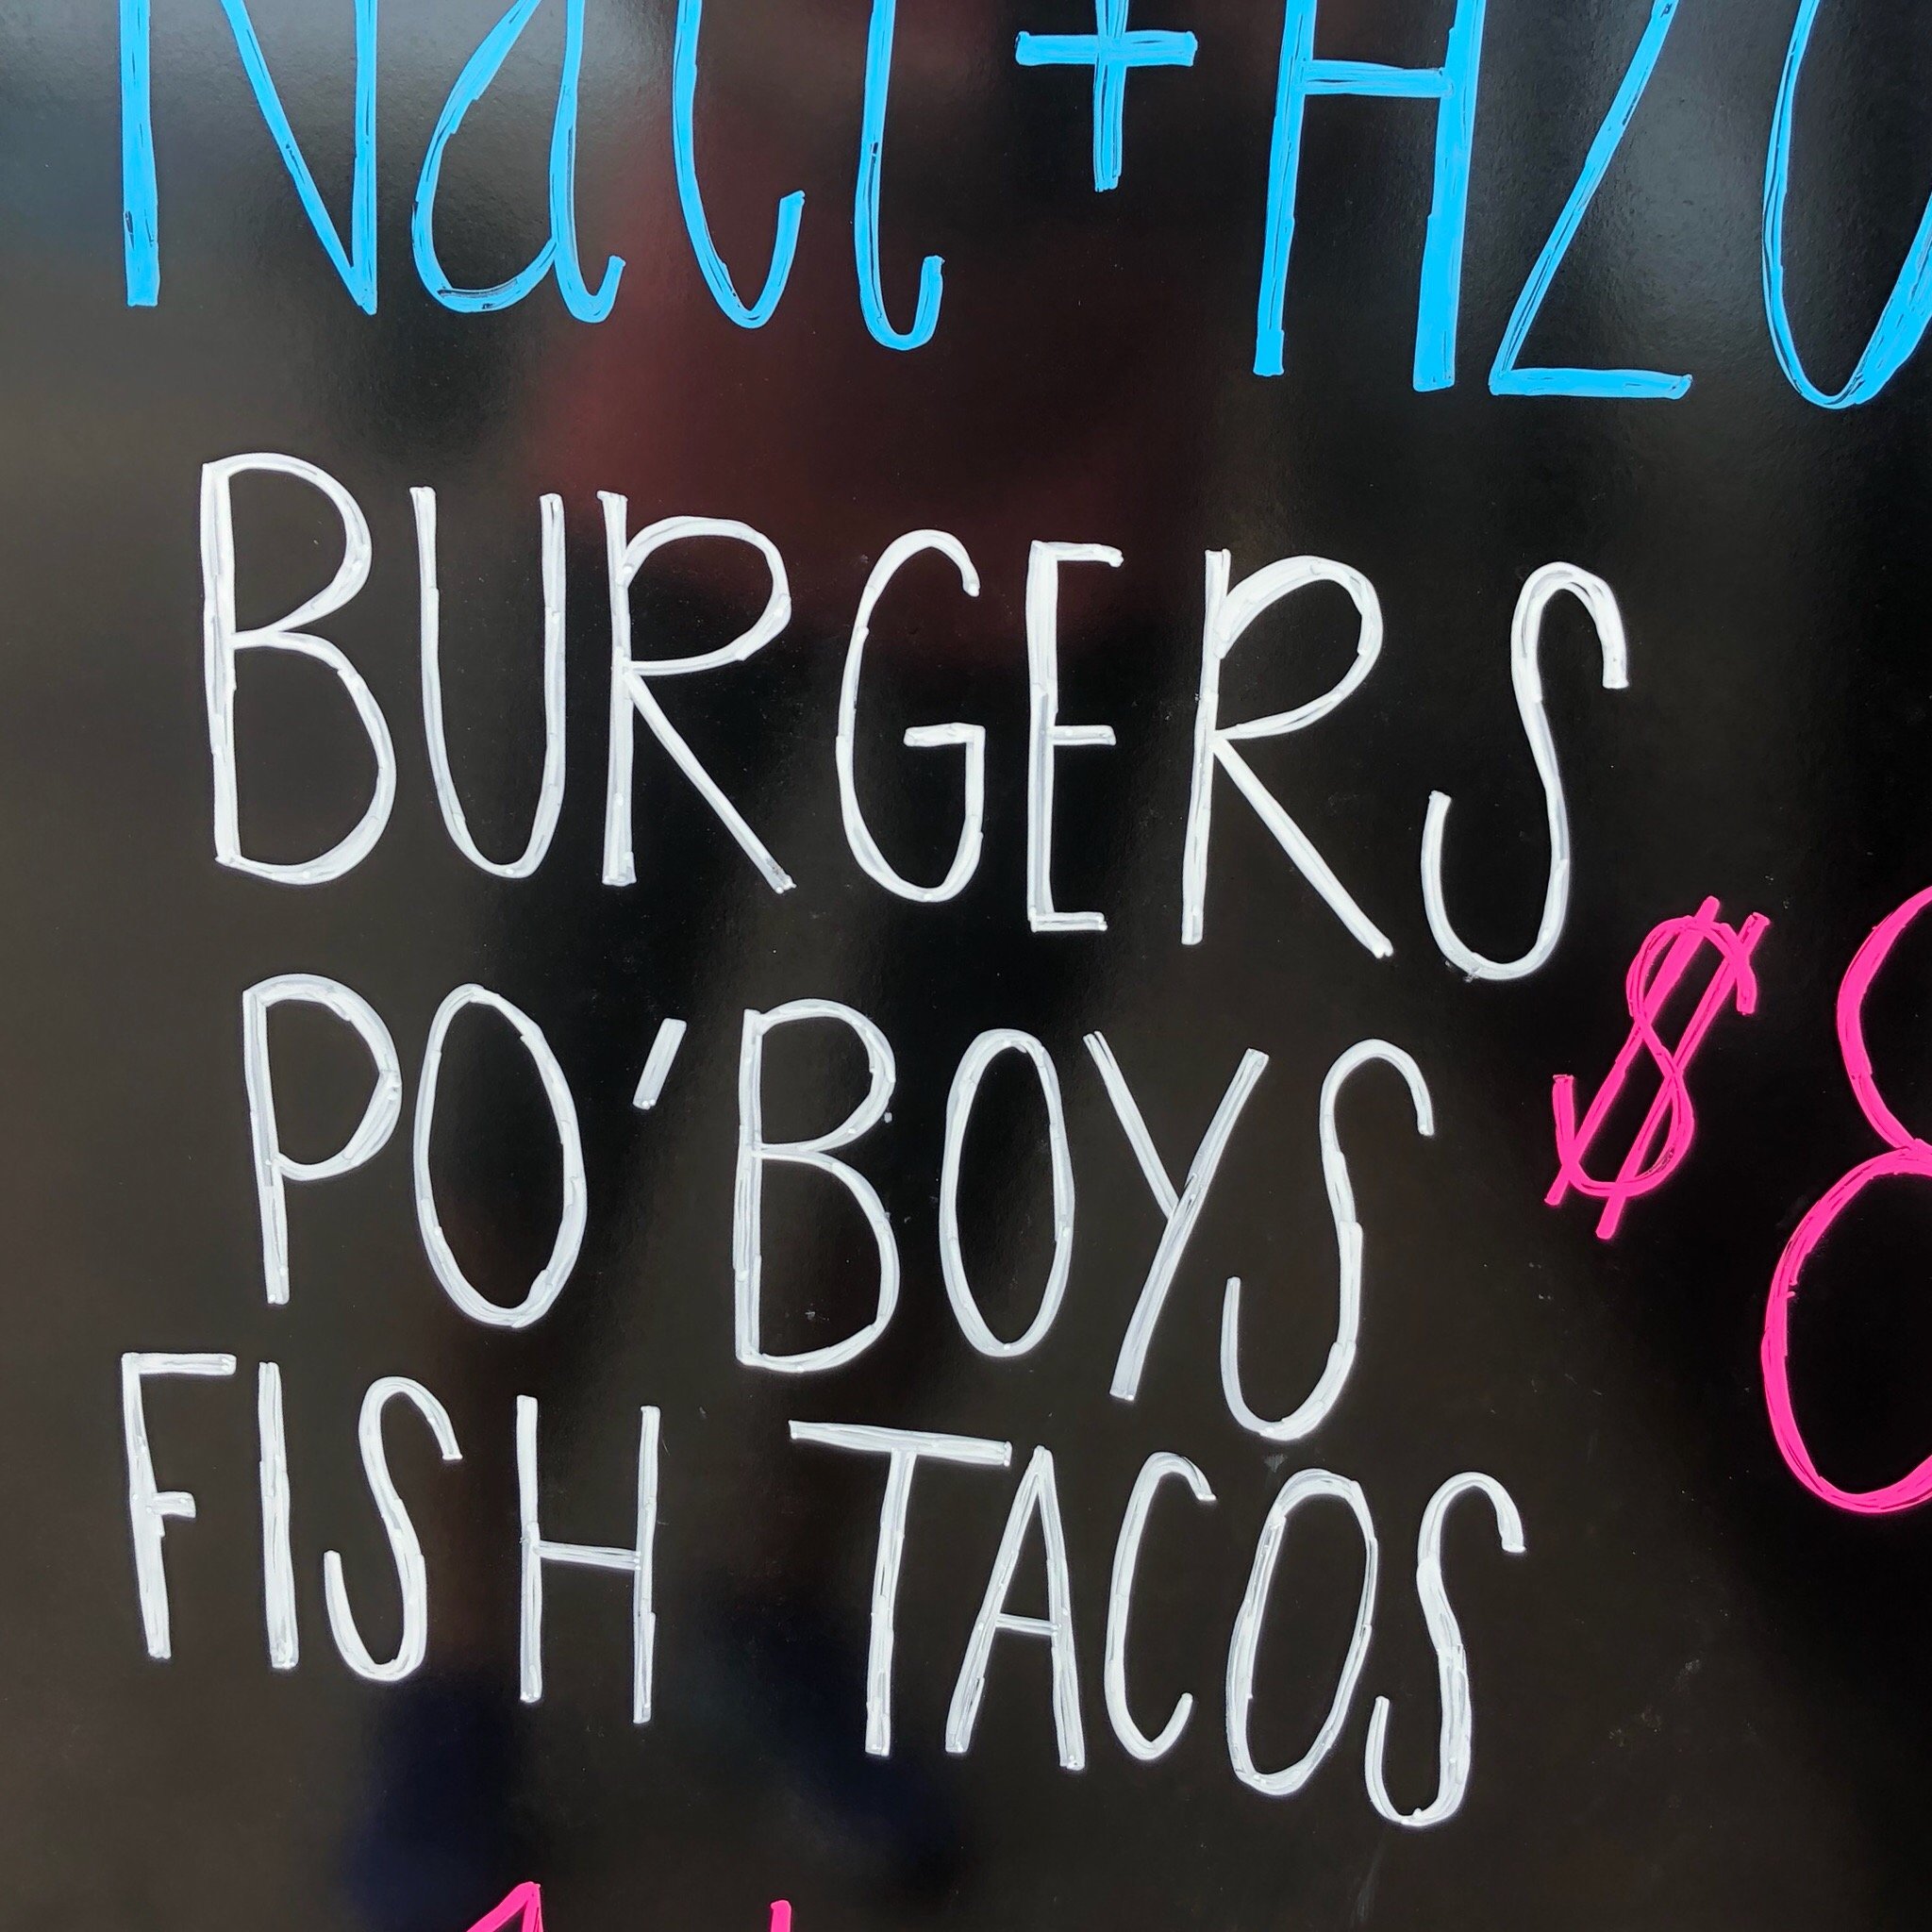 NaCl + H2O
BURGERS
PO'BOYS
$8
FISH TACOS